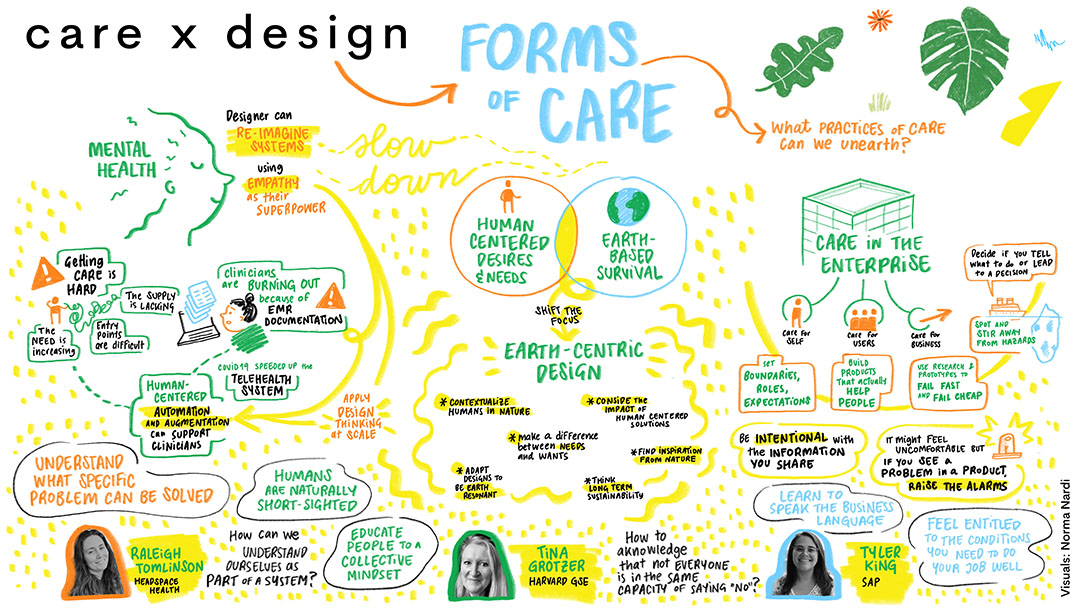 care x design
FORMS
OF CARE
What PRACTICES OF CARE
can we unearth?
MENTAL
HEALTH
Designer can
RE-IMAGINE
SYSTEMS
using
EMPATHY
as their
SUPERPOWER
slow
down
Getting
CARE is
HARD
The SUPPLY
is LACKING
The
NEED is
increasing
Entry
points
are difficult
clinicians
are BURNING OUT
because of
EMR
DOCUMENTATION
COVID19 SPEEDED UP the
TELEHEALTH
SYSTEM
HUMAN-
CENTERED
AUTOMATION
AND AUGMENTATION
can SUPPORT
CLINICIANS
APPLY
DESIGN
THINKING
at SCALE
UNDERSTAND
WHAT SPECIFIC
PROBLEM CAN BE SOLVED
HUMANS
ARE NATURALLY
SHORT-SIGHTED
RALEIGH
TOMLINSON
HEADSPACE
HEALTH
How can we
UNDERSTAND
OURSELVES as
PART OF A SYSTEM?
EDUCATE
PEOPLE TO A
COLLECTIVE
MINDSET
HUMAN
CENTERED
DESIRES
& NEEDS
EARTH-
BASED
SURVIVAL
SHIFT THE
FOCUS
EARTH-CENTRIC
DESIGN
* CONTEXTUALIZE
HUMANS in NATURE
* CONSIDE THE
IMPACT OF
HUMAN CENTERED
SOLUTIONS
* make a difference
between NEEDS
and WANTS
* FIND INSPIRATION
FROM NATURE
* ADAPT
DESIGNS TO
BE EARTH
RESONANT
* THINK
LONG TERM
SUSTAINABILITY
TINA
GROTZER
HARVARD GSE
How to
aknowledge
that not EVERYONE
is in the SAME
CAPACITY OF SAYING "NO"?
CARE IN THE
ENTERPRISE
Decide if YOU TELL
WHAT to do or LEAD
to a DECISION
care for
SELF
care for
USERS
care for
BUSINESS
SPOT AND
STIR AWAY
FROM HAZARDS
SET
BOUNDARIES,
ROLES,
EXPECTATIONS
BUILD
PRODUCTS
THAT actually
HELP
PEOPLE
USE RESEARCH &
PROTOTYPES TO
FAIL FAST
AND FAIL CHEAP
BE INTENTIONAL with
the INFORMATION
YOU SHARE
IT might FEEL
UNCOMFORTABLE BUT
IF YOU SEE A
PROBLEM in a PRODUCT,
RAISE THE ALARMS
LEARN TO
SPEAK THE BUSINESS
LANGUAGE
FEEL ENTITLED
TO THE CONDITIONS
YOU NEED TO DO
YOUR JOB WELL
TYLER
KING
SAP
Visuals: Norma Nardi